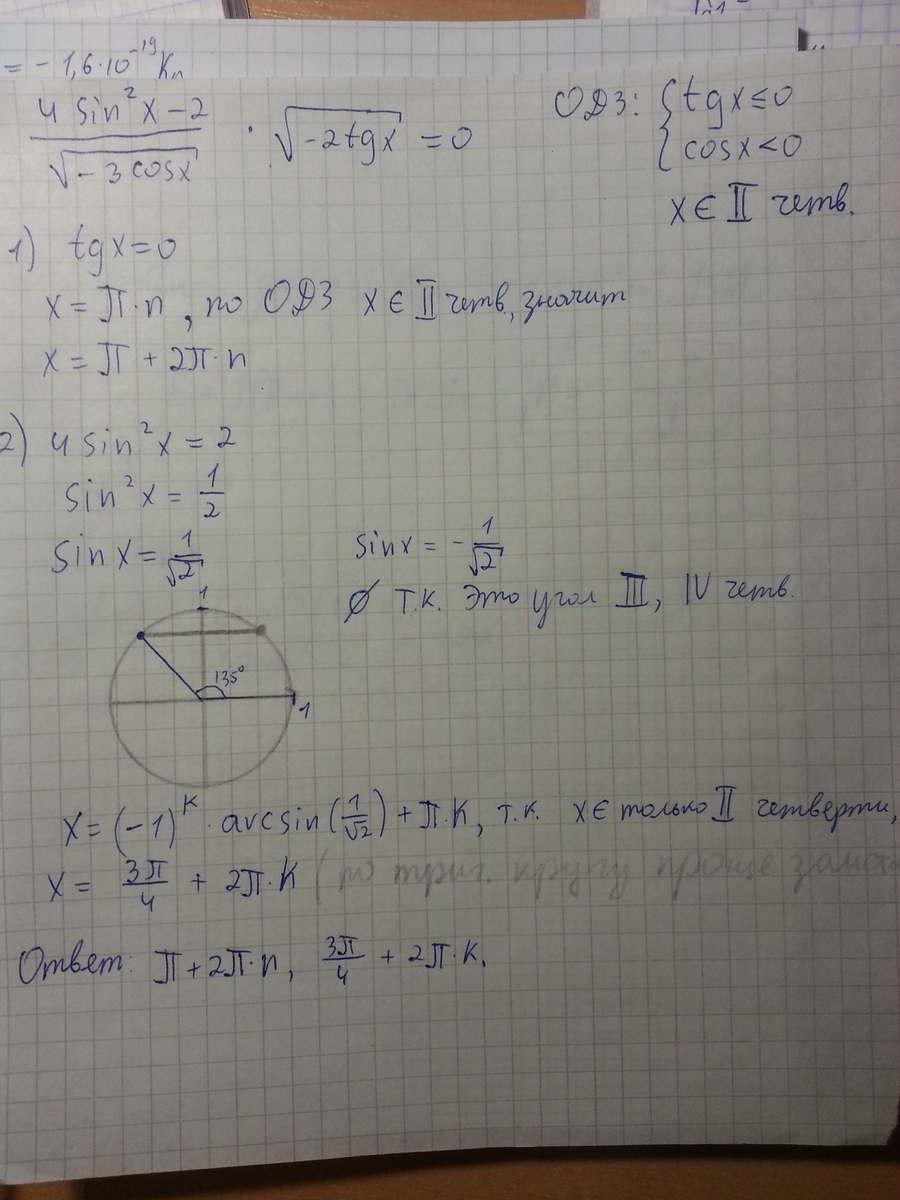 = -1,6·10⁻¹⁹ Кл
(4 sin²x - 2)/√(-3 cosx) · √(-2tgx) = 0
ОДЗ: { tgx ≤ 0
cosx < 0
x ∈ II четв.
1) tgx = 0
x = π·n, по ОДЗ x ∈ II четв, значит
x = π + 2π·n
2) 4 sin²x = 2
sin²x = 1/2
sinx = 1/√2
sinx = -1/√2
∅ т.к. это угол III, IV четв.
1
135°
1
x = (-1)ᴷ · arcsin(1/√2) + π·K, т.к. x ∈ только II четверти,
x = 3π/4 + 2π·K (по триг. кругу проще
Ответ: π + 2π·n, 3π/4 + 2π·K.